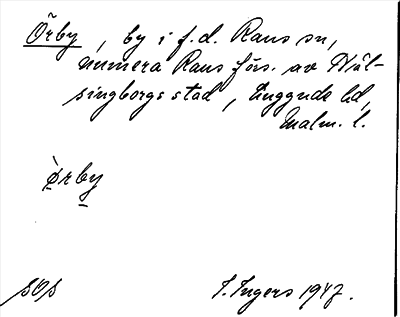 Örby, by i f.d. Raus sn,
numera Raus förs. av Häl-
singborgs stad, Luggude hd,
Malm. l.
ò̱rby̱
SOS
I. Ingers 1947.